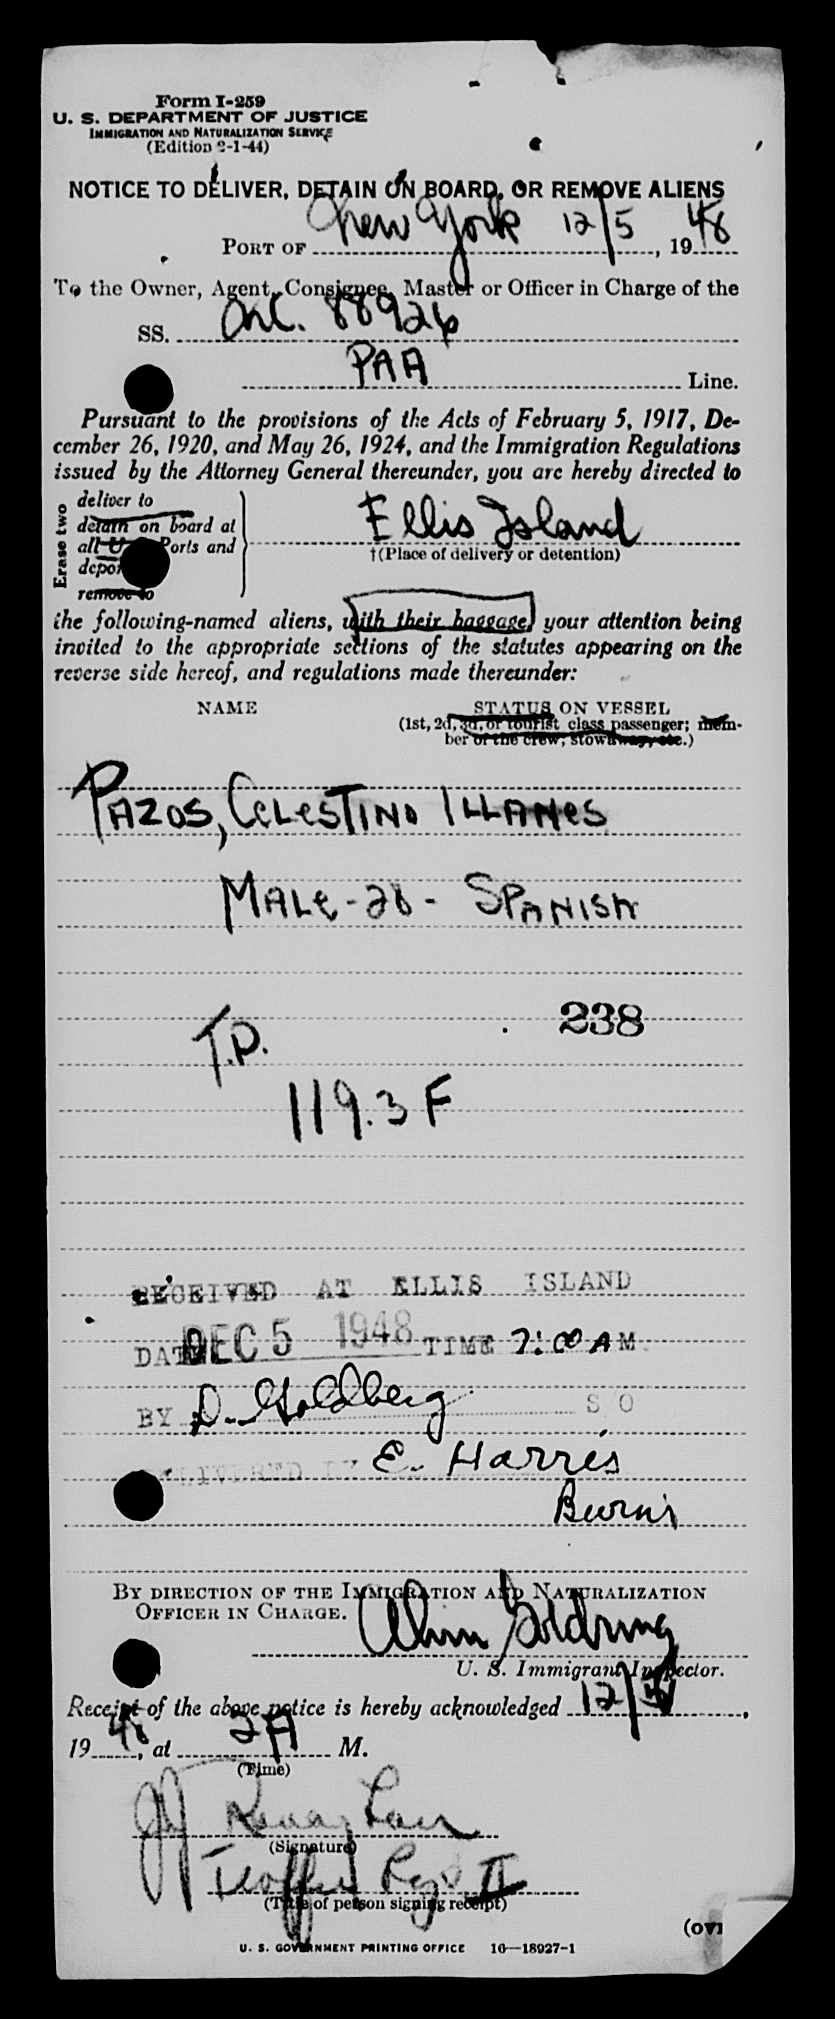 Form I-259
U. S. DEPARTMENT OF JUSTICE
IMMIGRATION AND NATURALIZATION SERVICE
(Edition 2-1-44)
NOTICE TO DELIVER, DETAIN ON BOARD, OR REMOVE ALIENS
PORT OF New York 12/5, 1948
To the Owner, Agent, Consignee, Master or Officer in Charge of the
SS. 88926
PAA Line.
Pursuant to the provisions of the Acts of February 5, 1917, De-
cember 26, 1920, and May 26, 1924, and the Immigration Regulations
issued by the Attorney General thereunder, you are hereby directed to
Erase two
deliver to
detain on board at
all U. S. Ports and
deport
remove to
Ellis Island
†(Place of delivery or detention)
the following-named aliens, with their baggage, your attention being
invited to the appropriate sections of the statutes appearing on the
reverse side hereof, and regulations made thereunder:
NAME STATUS ON VESSEL
(1st, 2d, 3d, or tourist class passenger; mem-
ber of the crew; stowaway, etc.)
PAZOS, CELESTINO ILLANES
MALE - 28 - SPANISH
238
T.D.
119.3 F
RECEIVED AT ELLIS ISLAND
DATE DEC 5 1948 TIME 7:00 A M.
BY D. Goldberg S O
DELIVERED BY E. Harris
Burns
BY DIRECTION OF THE IMMIGRATION AND NATURALIZATION
OFFICER IN CHARGE.
Goldring
U. S. Immigrant Inspector.
Receipt of the above notice is hereby acknowledged 12/
1948, at 2 A M.
(Time)
(Signature)
(Title of person signing receipt)
U. S. GOVERNMENT PRINTING OFFICE 16—18927-1